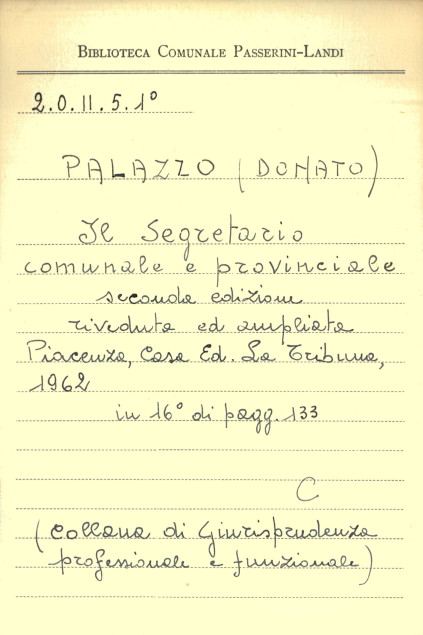 BIBLIOTECA COMUNALE PASSERINI-LANDI
2.0.II.5.1°
PALAZZO (DONATO)
Il Segretario
comunale e provinciale
seconda edizione
riveduta ed ampliata
Piacenza, Casa Ed. La Tribuna,
1962
in 16° di pagg. 133
C
(Collana di Giurisprudenza
professionale e funzionale)